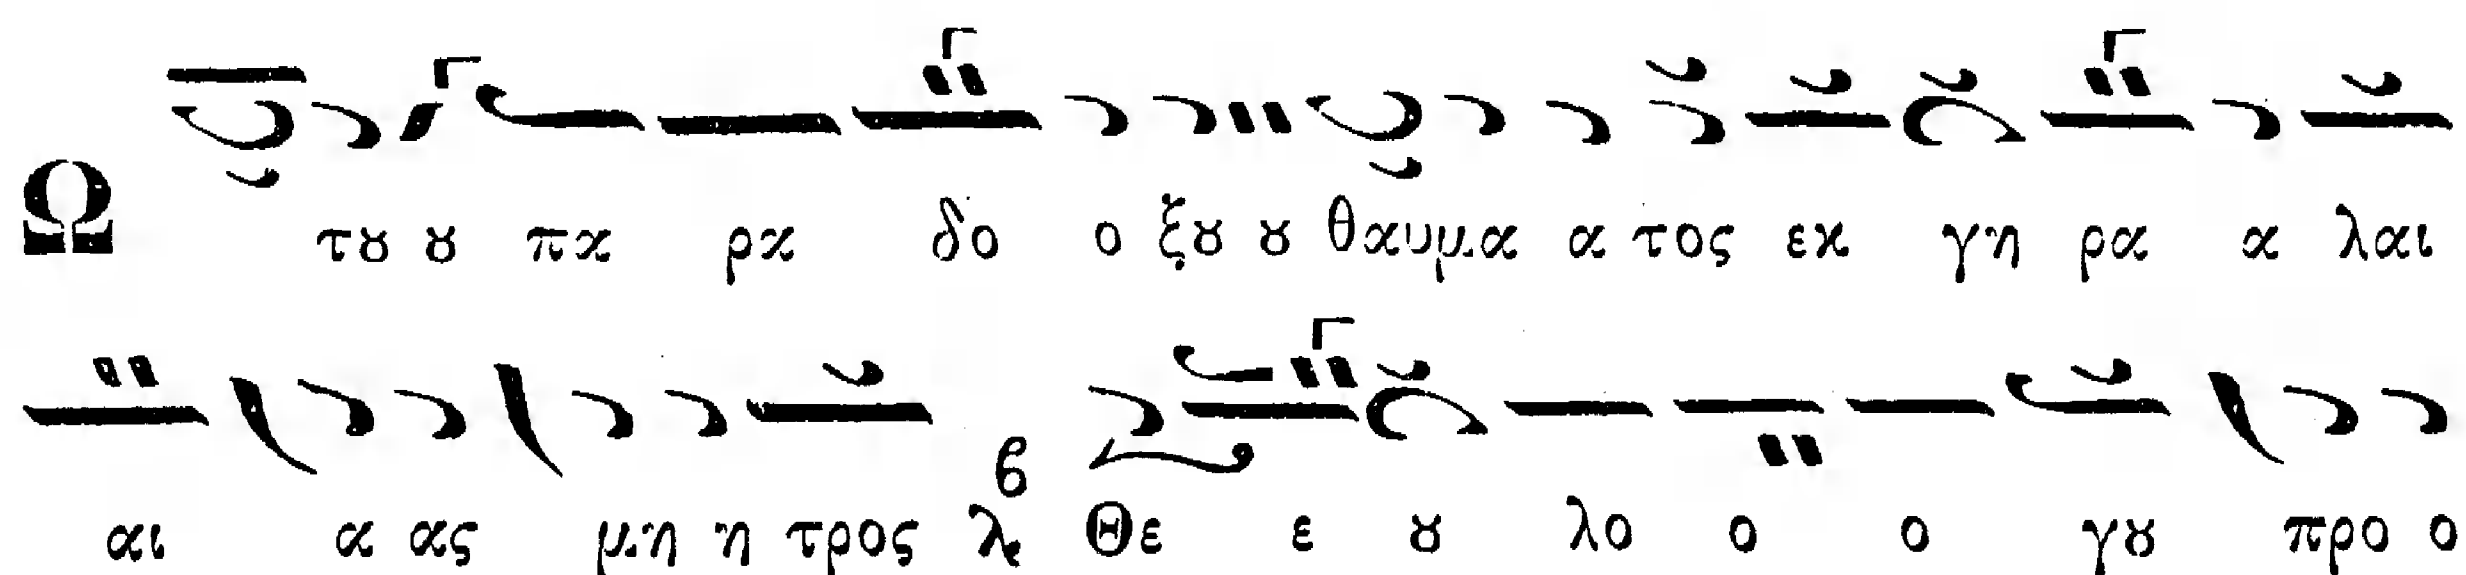 Ω τȣ ȣ πα ρα δο ο ξȣ ȣ θαυμα α τος εκ γη ρα α λαι
αι α ας μη η προς λε Θε ε ȣ λο ο ο γȣ προ ο